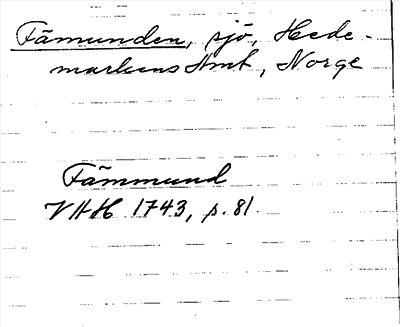 Fämunden, sjö, Hede-
markens Amt, Norge
Fämmund
VHH 1743, p. 81.